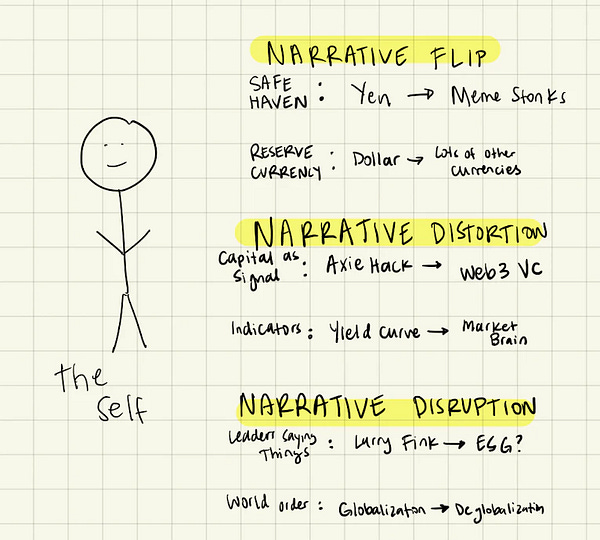 NARRATIVE FLIP
SAFE HAVEN : Yen → Meme Stonks
RESERVE CURRENCY : Dollar → Lots of other currencies
NARRATIVE DISTORTION
Capital as Signal : Axie Hack → Web3 VC
Indicators : Yield Curve → Market Brain
NARRATIVE DISRUPTION
Leaders Saying Things : Larry Fink → ESG?
World order : Globalization → Deglobalization
the self